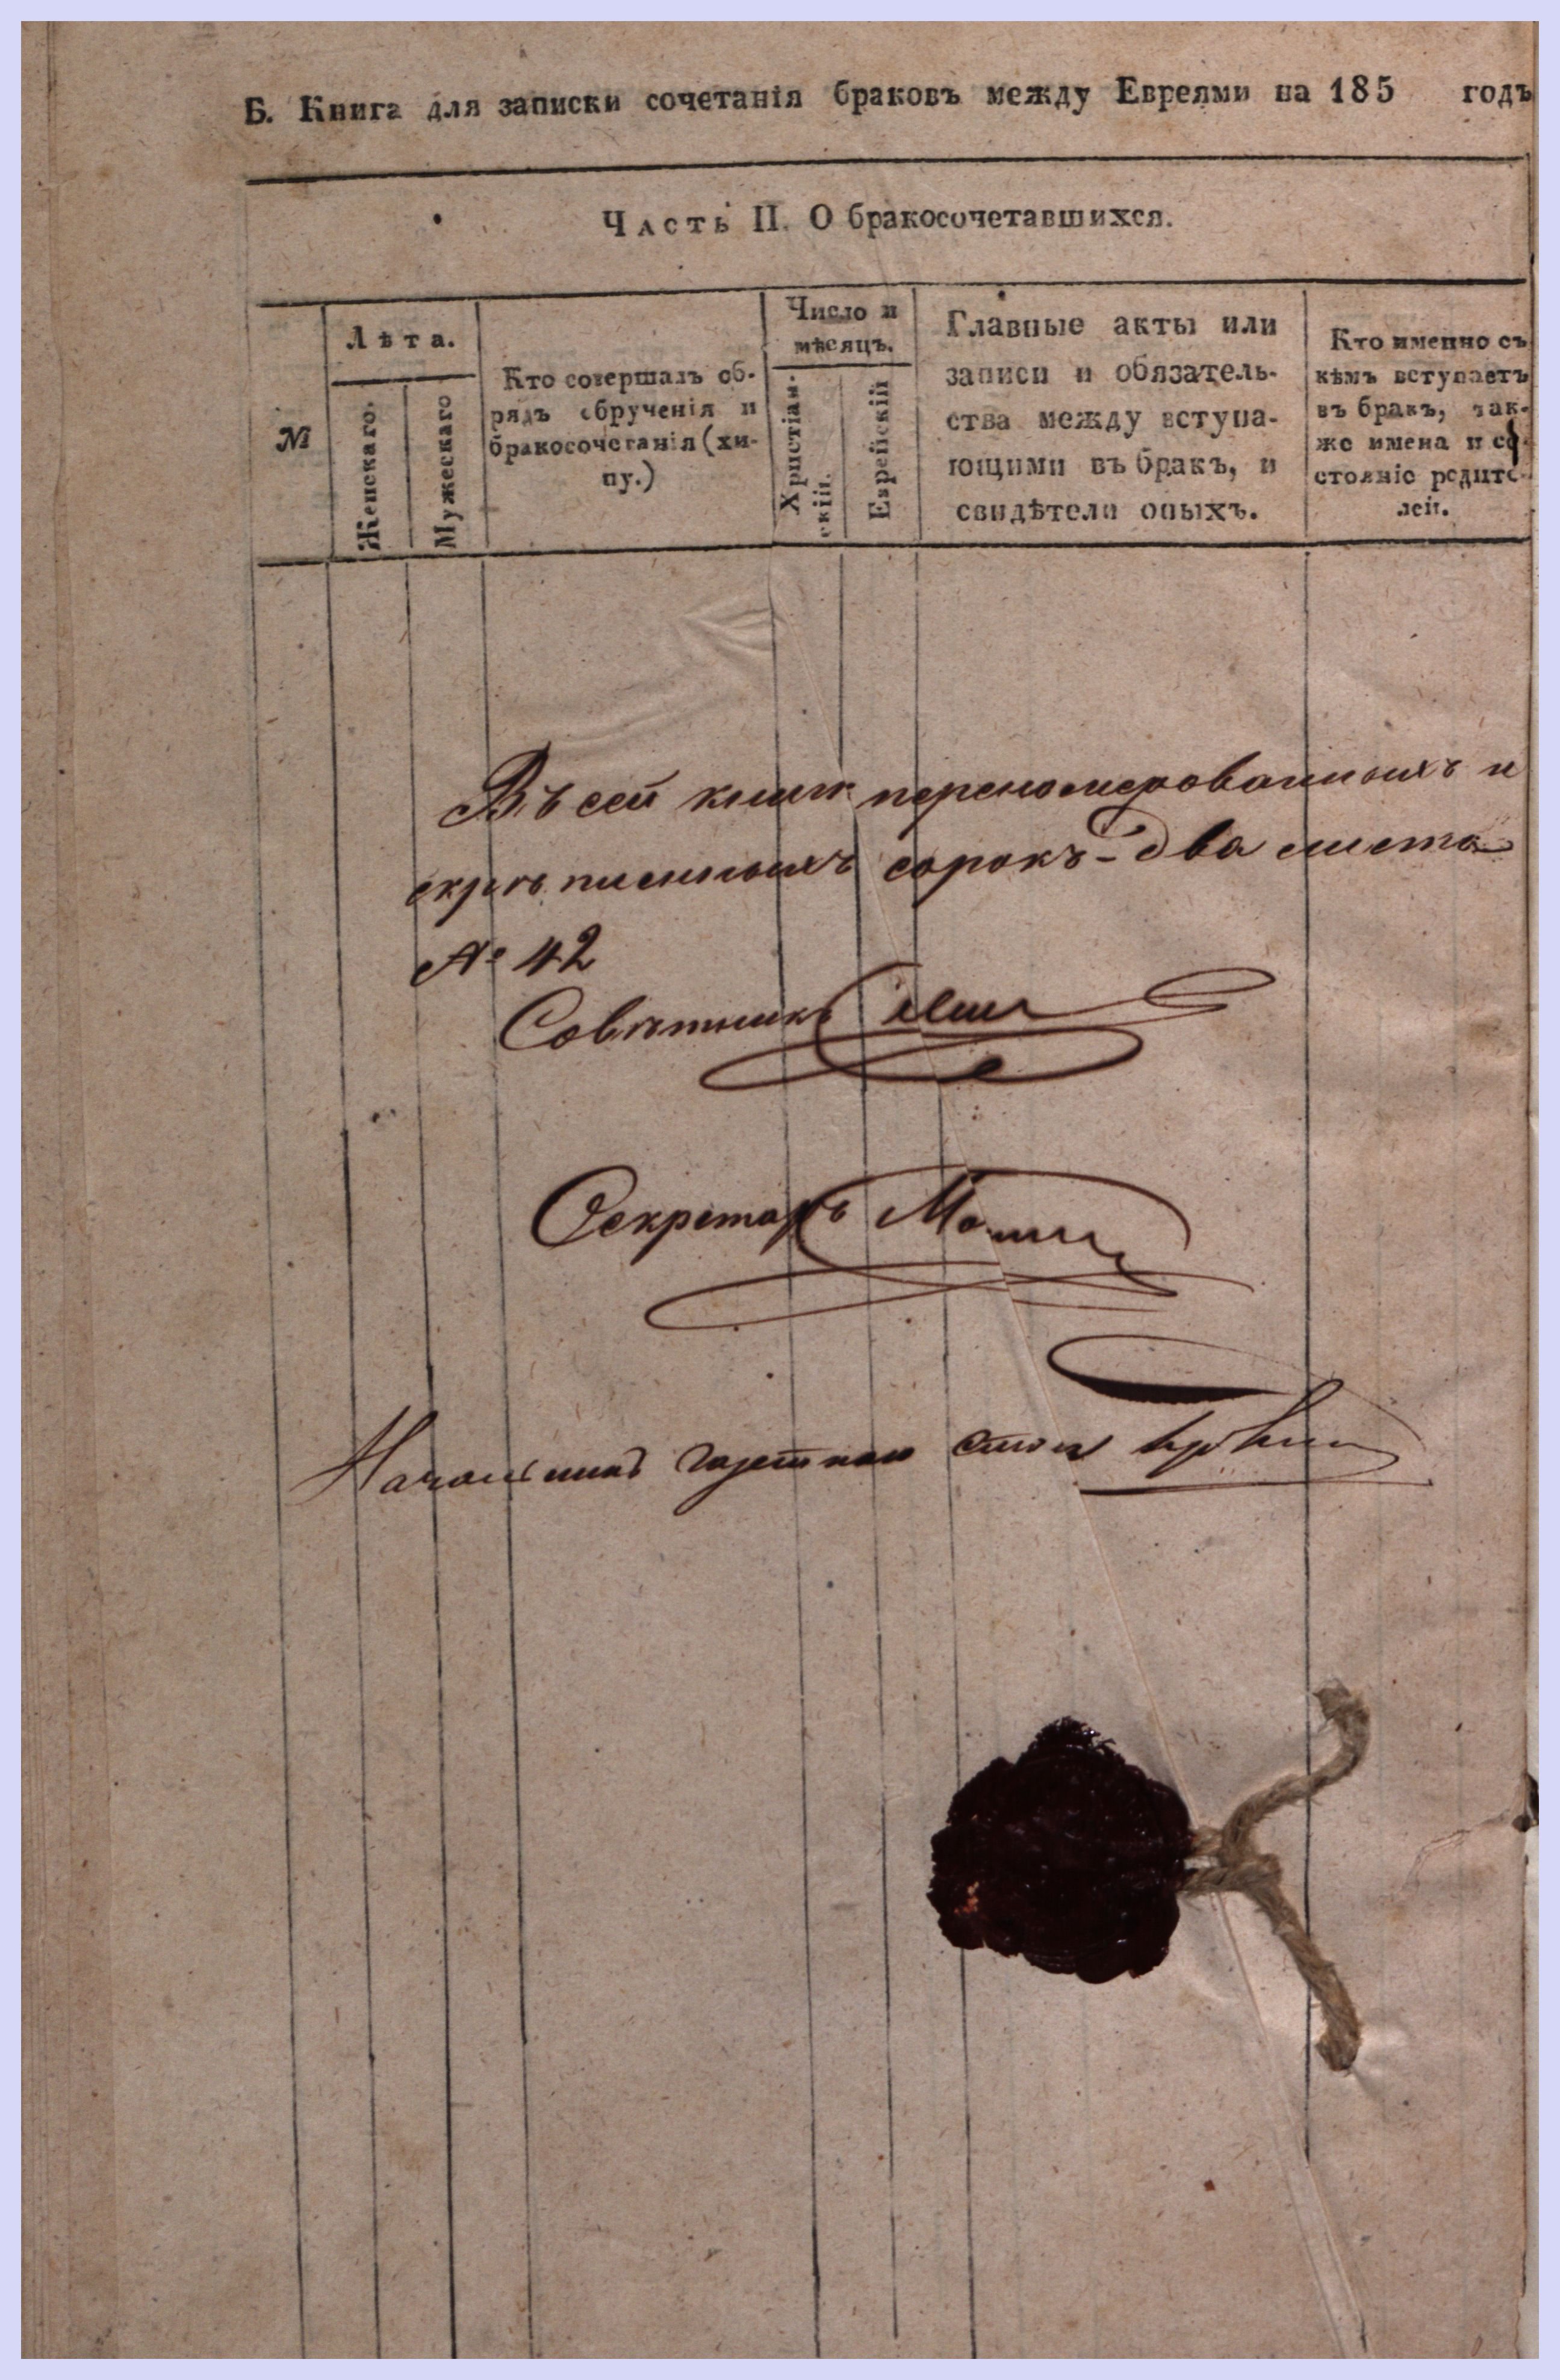 Б. Книга для записки сочетанія браковъ между Евреями на 185 годъ
Часть II. О бракосочетавшихся.
№
Лѣта.
Женскаго.
Мужескаго
Кто совершалъ об-
рядъ обрученія и
бракосочетанія (хи-
пу.)
Число и
мѣсяцъ.
Христіан-
скій.
Еврейскій
Главные акты или
записи и обязатель-
ства между вступа-
ющими въ бракъ, и
свидѣтели оныхъ.
Кто именно съ
кѣмъ вступаетъ
въ бракъ, так-
же имена и со-
стояніе родите-
лей.
Въ сей книгѣ переномерованныхъ и
скрѣпленныхъ сорокъ-два листа
№ 42
Совѣтникъ
Секретарь
Начальникъ газетнаго стола